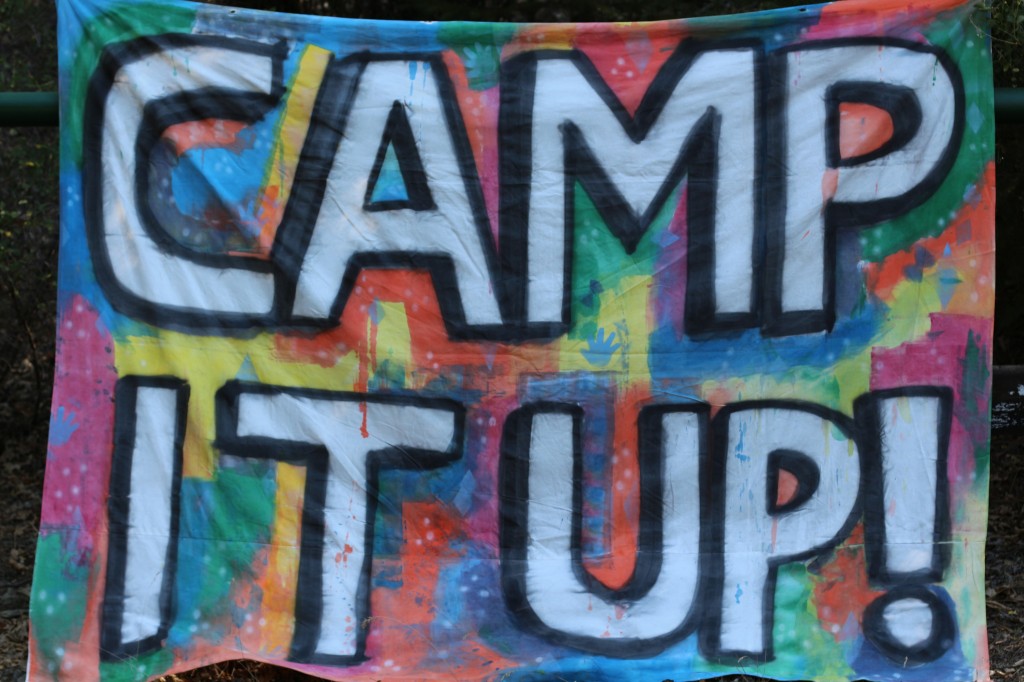 CAMP
IT UP!